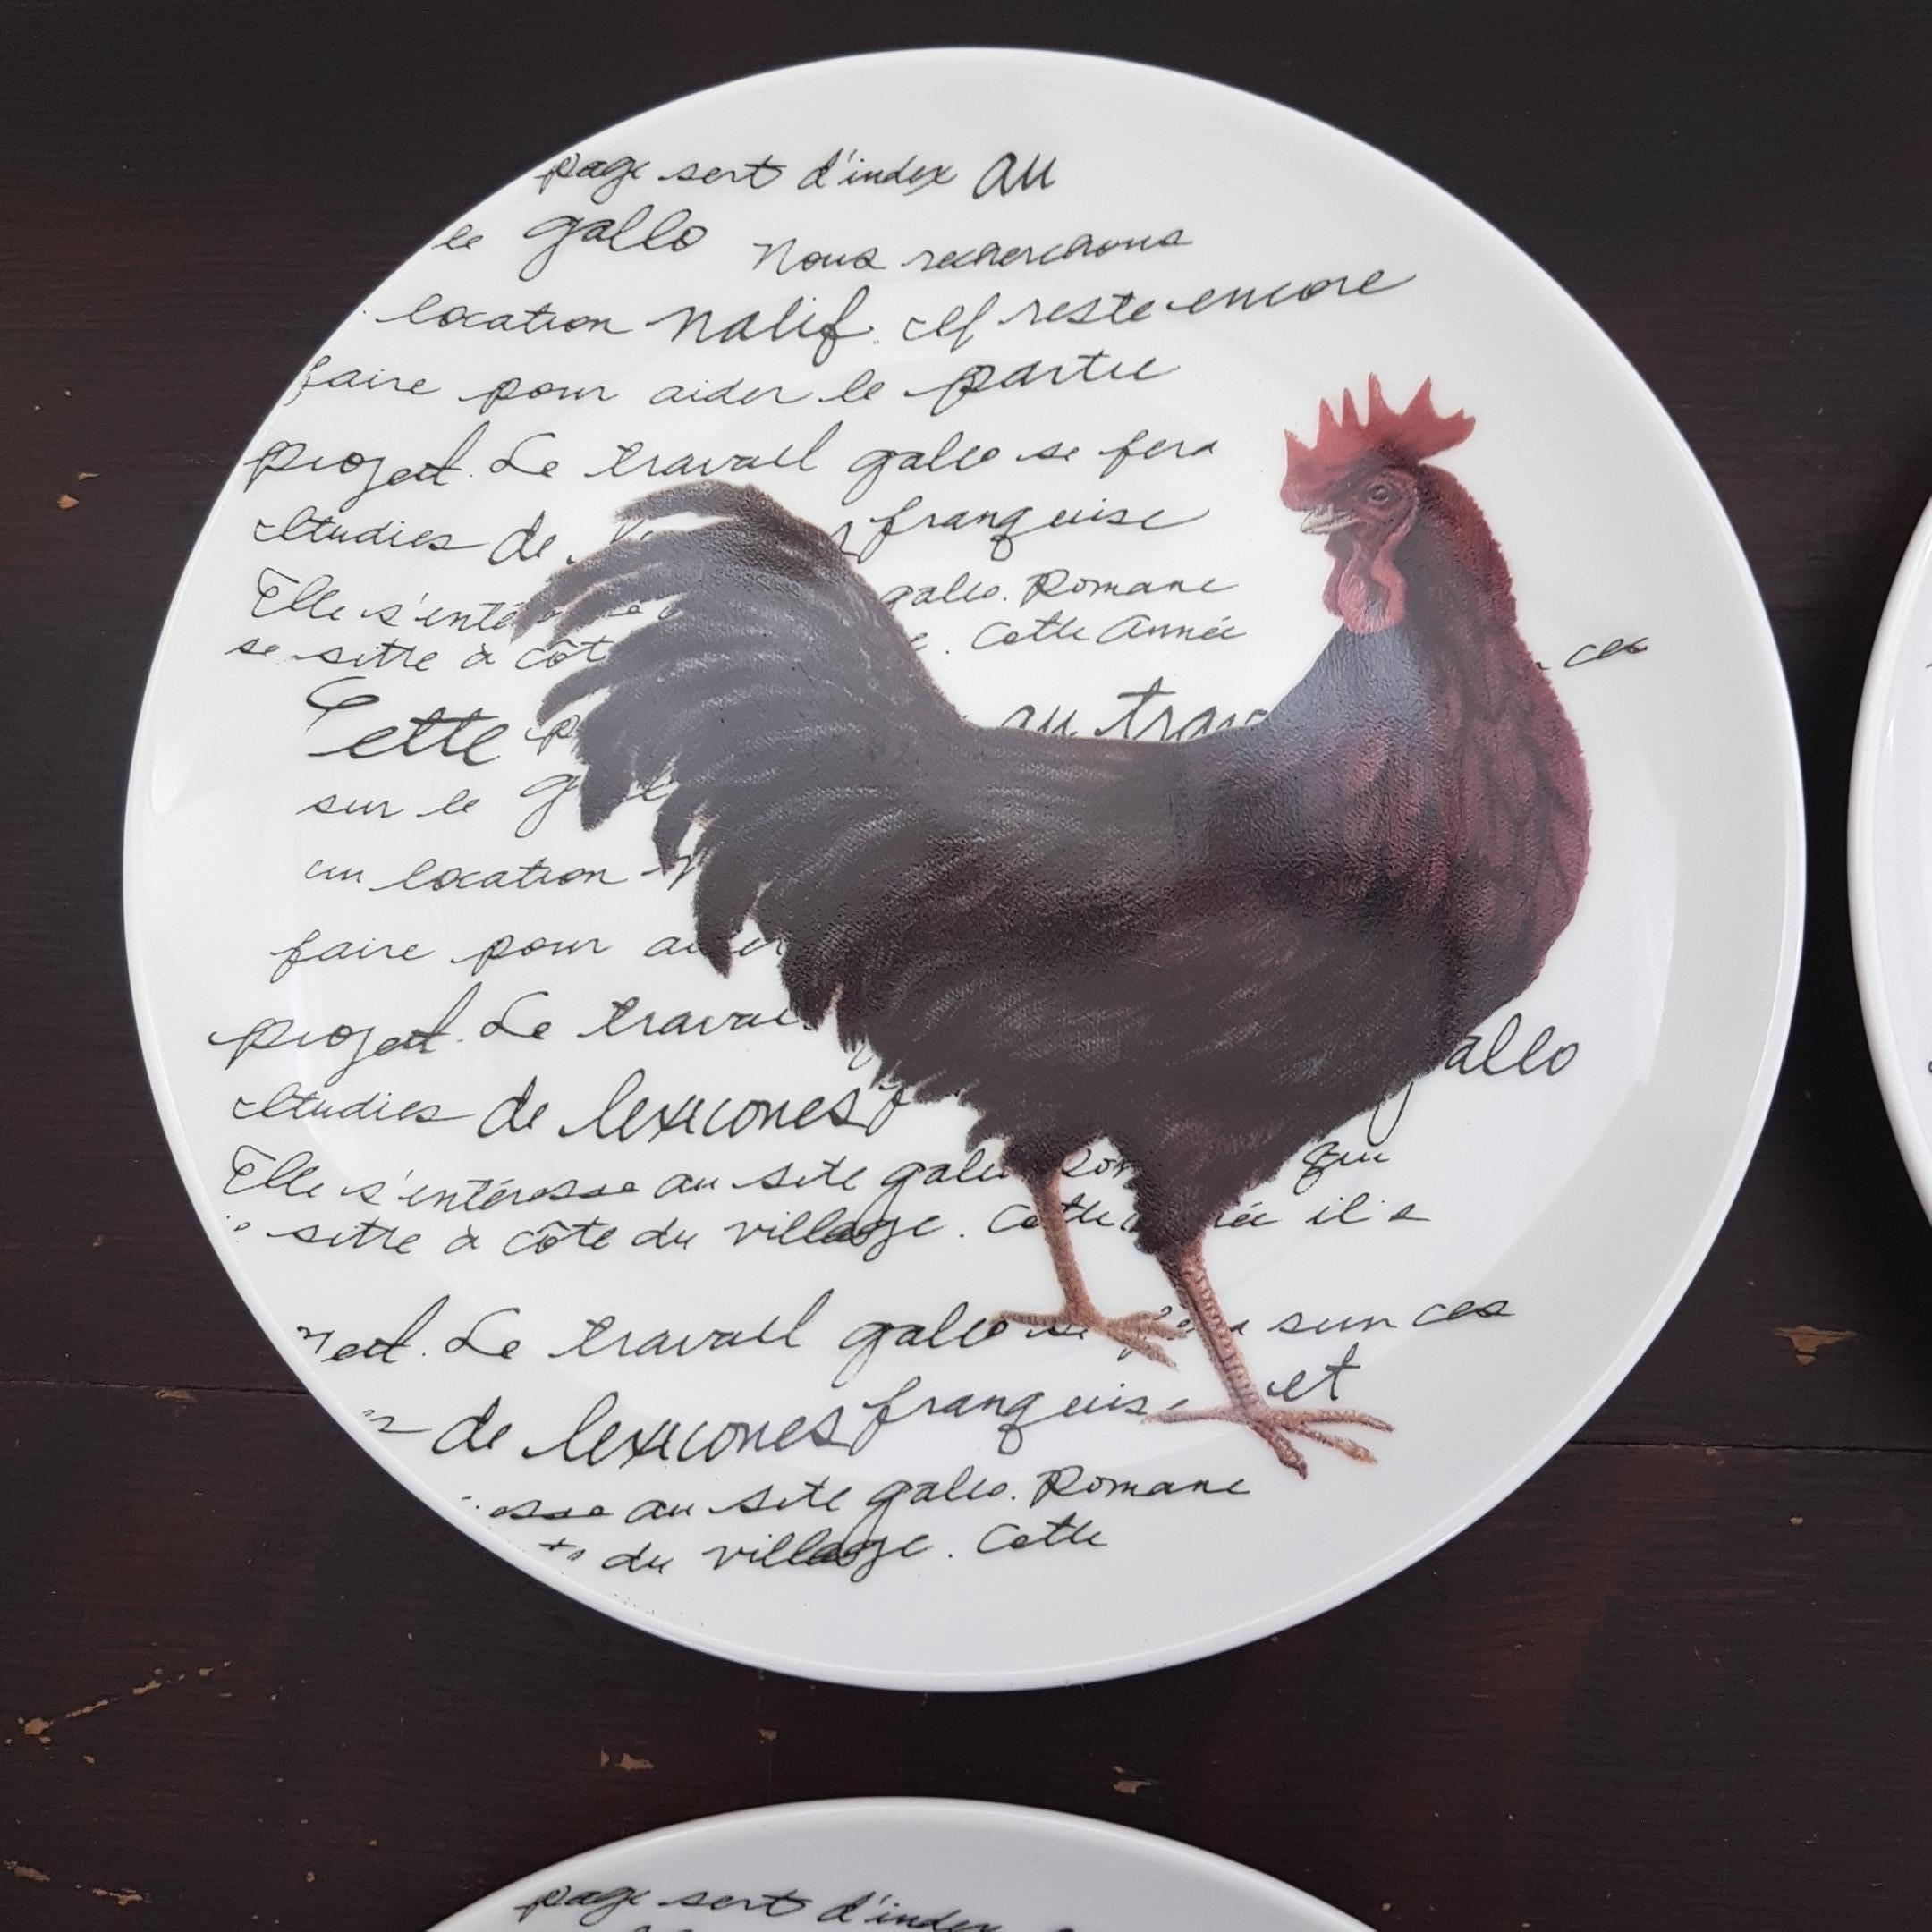 page sert d'index au
le gallo Nous recherchons
location nalif. cel reste encore
faire pour aider le partie
project. Le travail galeo se fera
etudies de franquise
Elle s'inté galeo. Romane
se sitre à côt e. Cette Année
ces
Cette p au trav
sur le g
un location
faire pour aider
project. Le travai
etudies de lexicones f
allo
Elle s'intéresse au site galeo Rom qui
sitre à côte du village. Cette année il a
ect. Le travail galeo se sur ces
de lexicones franquise et
esse au site galeo. Romane
du village. Cette
page sert d'index